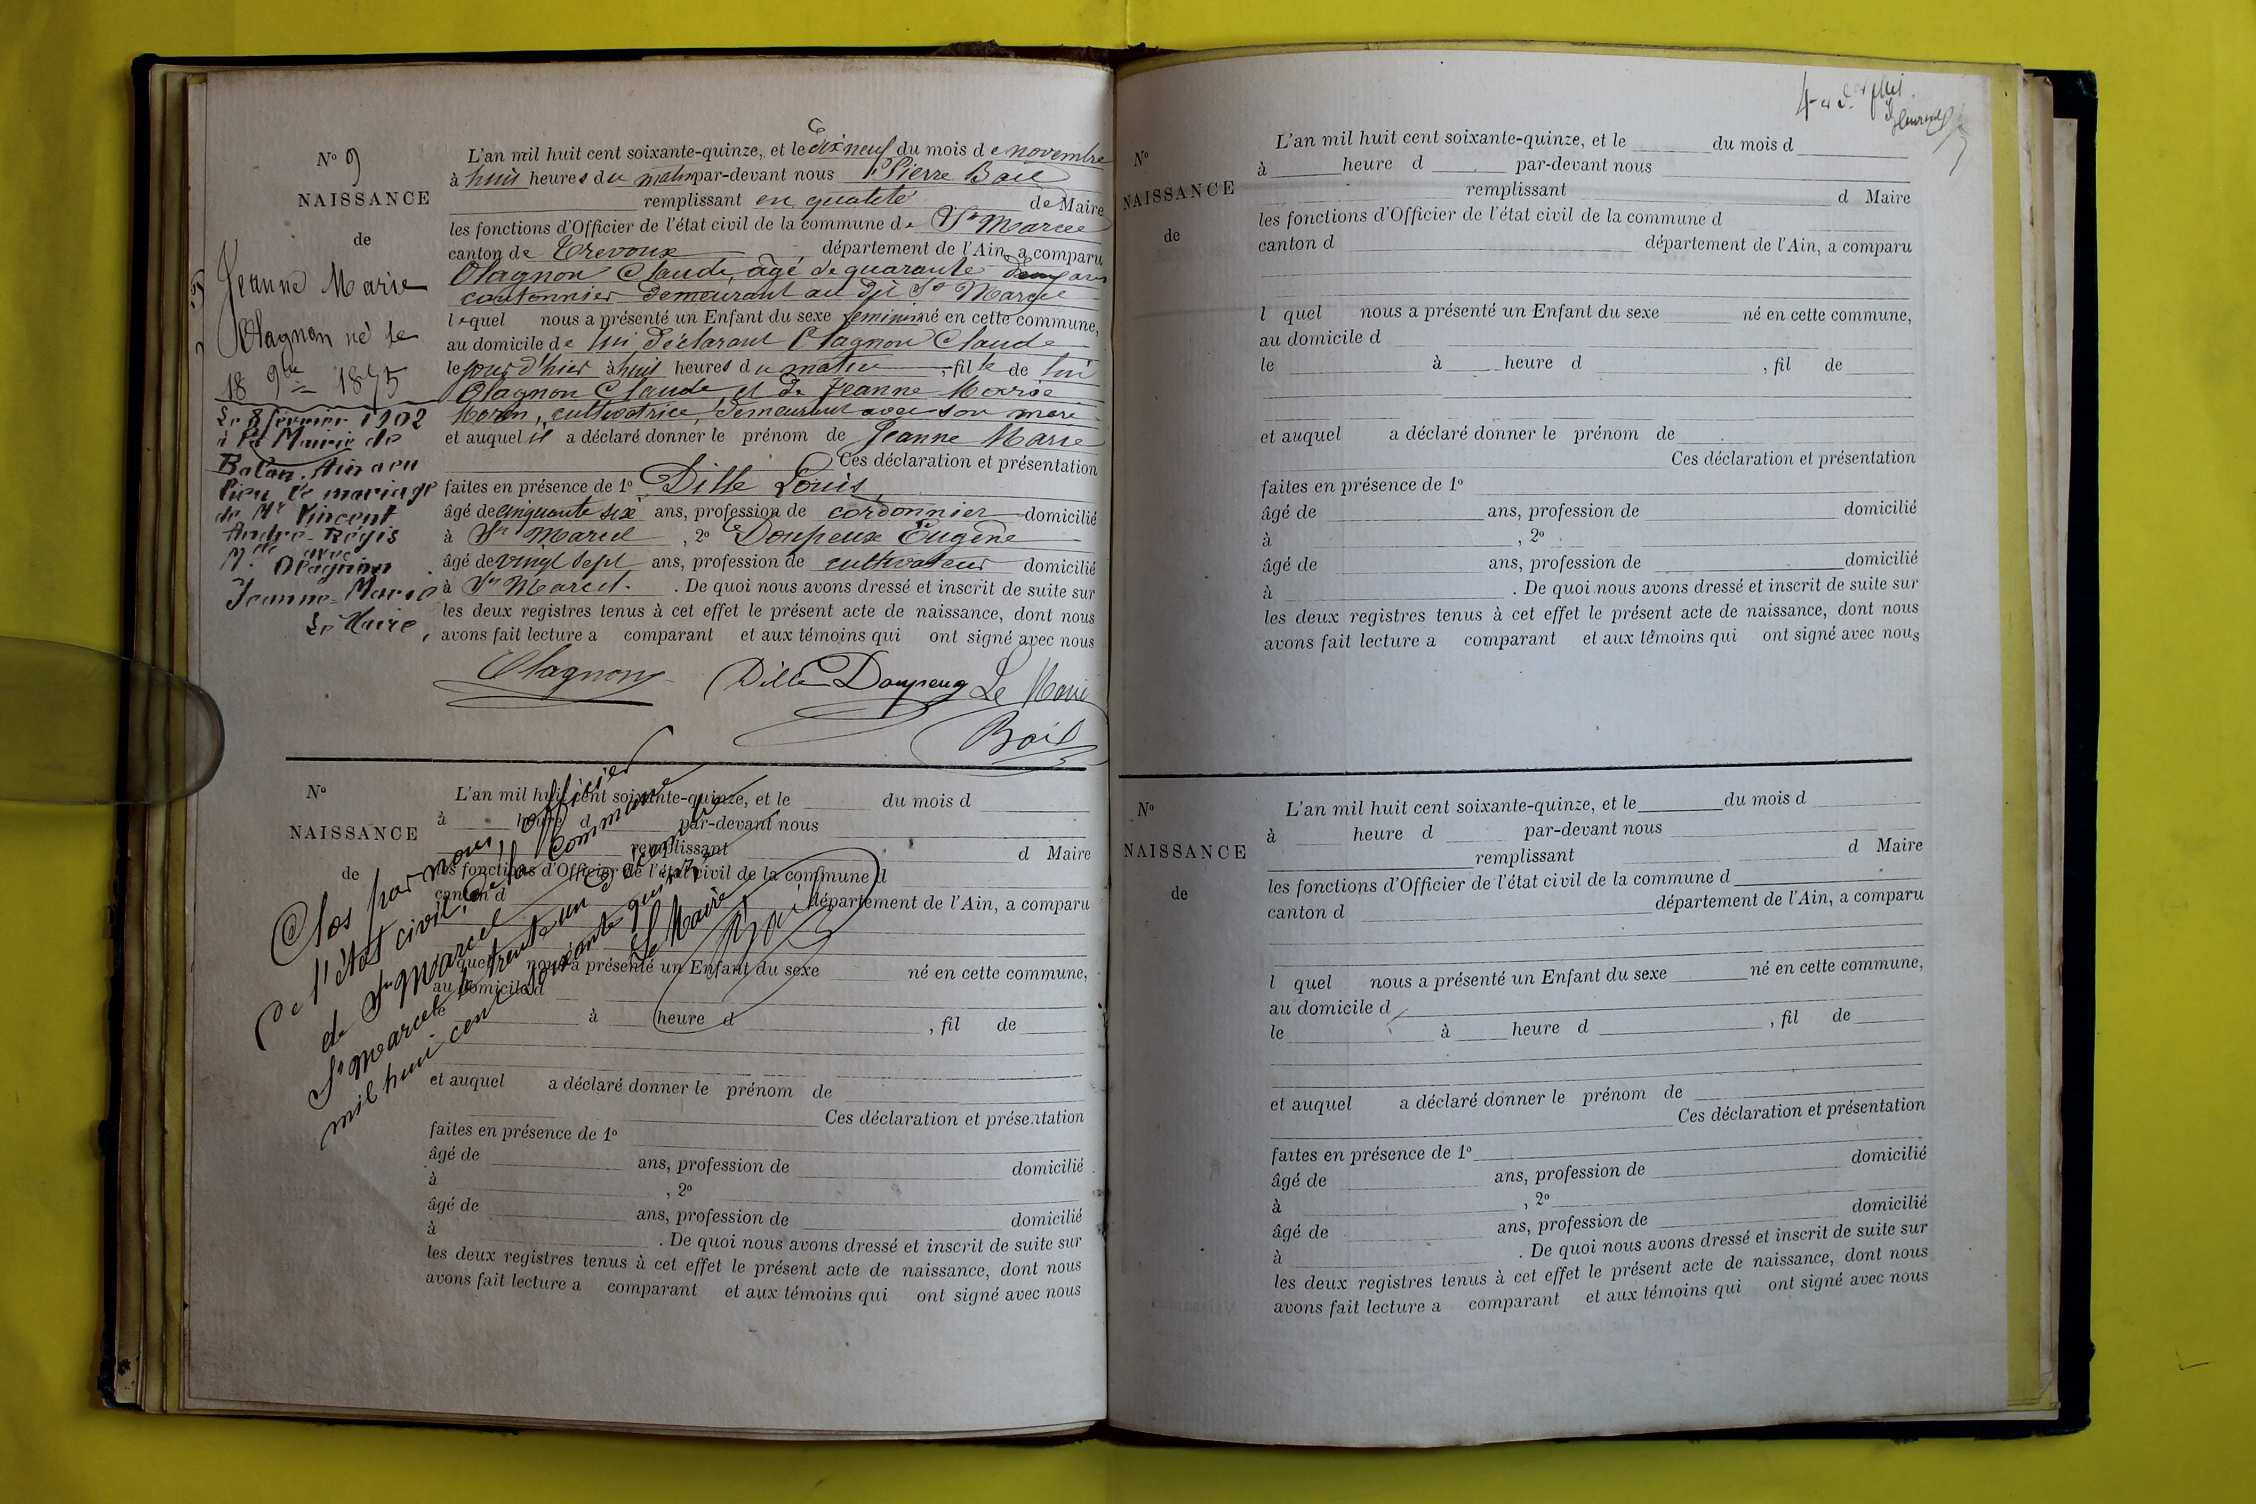 N° 9
NAISSANCE
de
Jeanne Marie
Olagnon né le
18 9bre 1875
Le 8 février 1902
à la Mairie de
Balan, Ain a eu
lieu le mariage
de Mr Vincent
André-Régis
avec
Mlle Olagnon
Jeanne-Marie
Le Maire,
L'an mil huit cent soixante-quinze, et le dix neuf du mois de novembre
à huit heures du matin par-devant nous Pierre Bail
remplissant en qualité de Maire
les fonctions d'Officier de l'état civil de la commune de St Marcel
canton de Trevoux département de l'Ain, a comparu
Olagnon Claude, âgé de quarante deux ans
cantonnier demeurant au dit St Marcel
lequel nous a présenté un Enfant du sexe feminin né en cette commune,
au domicile de lui déclarant Olagnon Claude
le jour d'hier à huit heures du matin, fille de lui
Olagnon Claude, et de Jeanne Marie
Morin, cultivatrice, demeurant avec son mari
et auquel il a déclaré donner le prénom de Jeanne Marie
Ces déclaration et présentation
faites en présence de 1° Dille Louis,
âgé de cinquante six ans, profession de cordonnier domicilié
à St Marcel, 2° Doupeux Eugène
âgé de vingt sept ans, profession de cultivateur domicilié
à St Marcel. De quoi nous avons dressé et inscrit de suite sur
les deux registres tenus à cet effet le présent acte de naissance, dont nous
avons fait lecture a comparant et aux témoins qui ont signé avec nous
Olagnon Dille Doupeux Le Maire
Bail
N°
NAISSANCE
de
L'an mil huit cent soixante-quinze, et le du mois d
à heure d par-devant nous
remplissant d Maire
les fonctions d'Officier de l'état civil de la commune d
canton d département de l'Ain, a comparu
l quel nous a présenté un Enfant du sexe né en cette commune,
au domicile d
le à heure d , fil de
et auquel a déclaré donner le prénom de
Ces déclaration et présentation
faites en présence de 1°
âgé de ans, profession de domicilié
à , 2°
âgé de ans, profession de domicilié
à . De quoi nous avons dressé et inscrit de suite sur
les deux registres tenus à cet effet le présent acte de naissance, dont nous
avons fait lecture a comparant et aux témoins qui ont signé avec nous
Clos par nous, officier
de l'état civil de la Commune
de St Marcel
St Marcel le trente un Décembre
mil huit cent soixante quinze
Le Maire
Bail
N°
NAISSANCE
de
L'an mil huit cent soixante-quinze, et le du mois d
à heure d par-devant nous
remplissant d Maire
les fonctions d'Officier de l'état civil de la commune d
canton d département de l'Ain, a comparu
l quel nous a présenté un Enfant du sexe né en cette commune,
au domicile d
le à heure d , fil de
et auquel a déclaré donner le prénom de
Ces déclaration et présentation
faites en présence de 1°
âgé de ans, profession de domicilié
à , 2°
âgé de ans, profession de domicilié
à . De quoi nous avons dressé et inscrit de suite sur
les deux registres tenus à cet effet le présent acte de naissance, dont nous
avons fait lecture a comparant et aux témoins qui ont signé avec nous
N°
NAISSANCE
de
L'an mil huit cent soixante-quinze, et le du mois d
à heure d par-devant nous
remplissant d Maire
les fonctions d'Officier de l'état civil de la commune d
canton d département de l'Ain, a comparu
l quel nous a présenté un Enfant du sexe né en cette commune,
au domicile d
le à heure d , fil de
et auquel a déclaré donner le prénom de
Ces déclaration et présentation
faites en présence de 1°
âgé de ans, profession de domicilié
à , 2°
âgé de ans, profession de domicilié
à . De quoi nous avons dressé et inscrit de suite sur
les deux registres tenus à cet effet le présent acte de naissance, dont nous
avons fait lecture a comparant et aux témoins qui ont signé avec nous